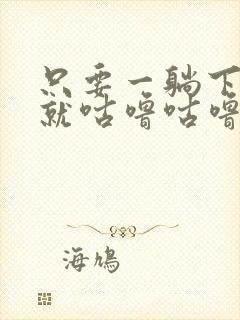 只要一躺下
就咕噜咕噜
海鸠